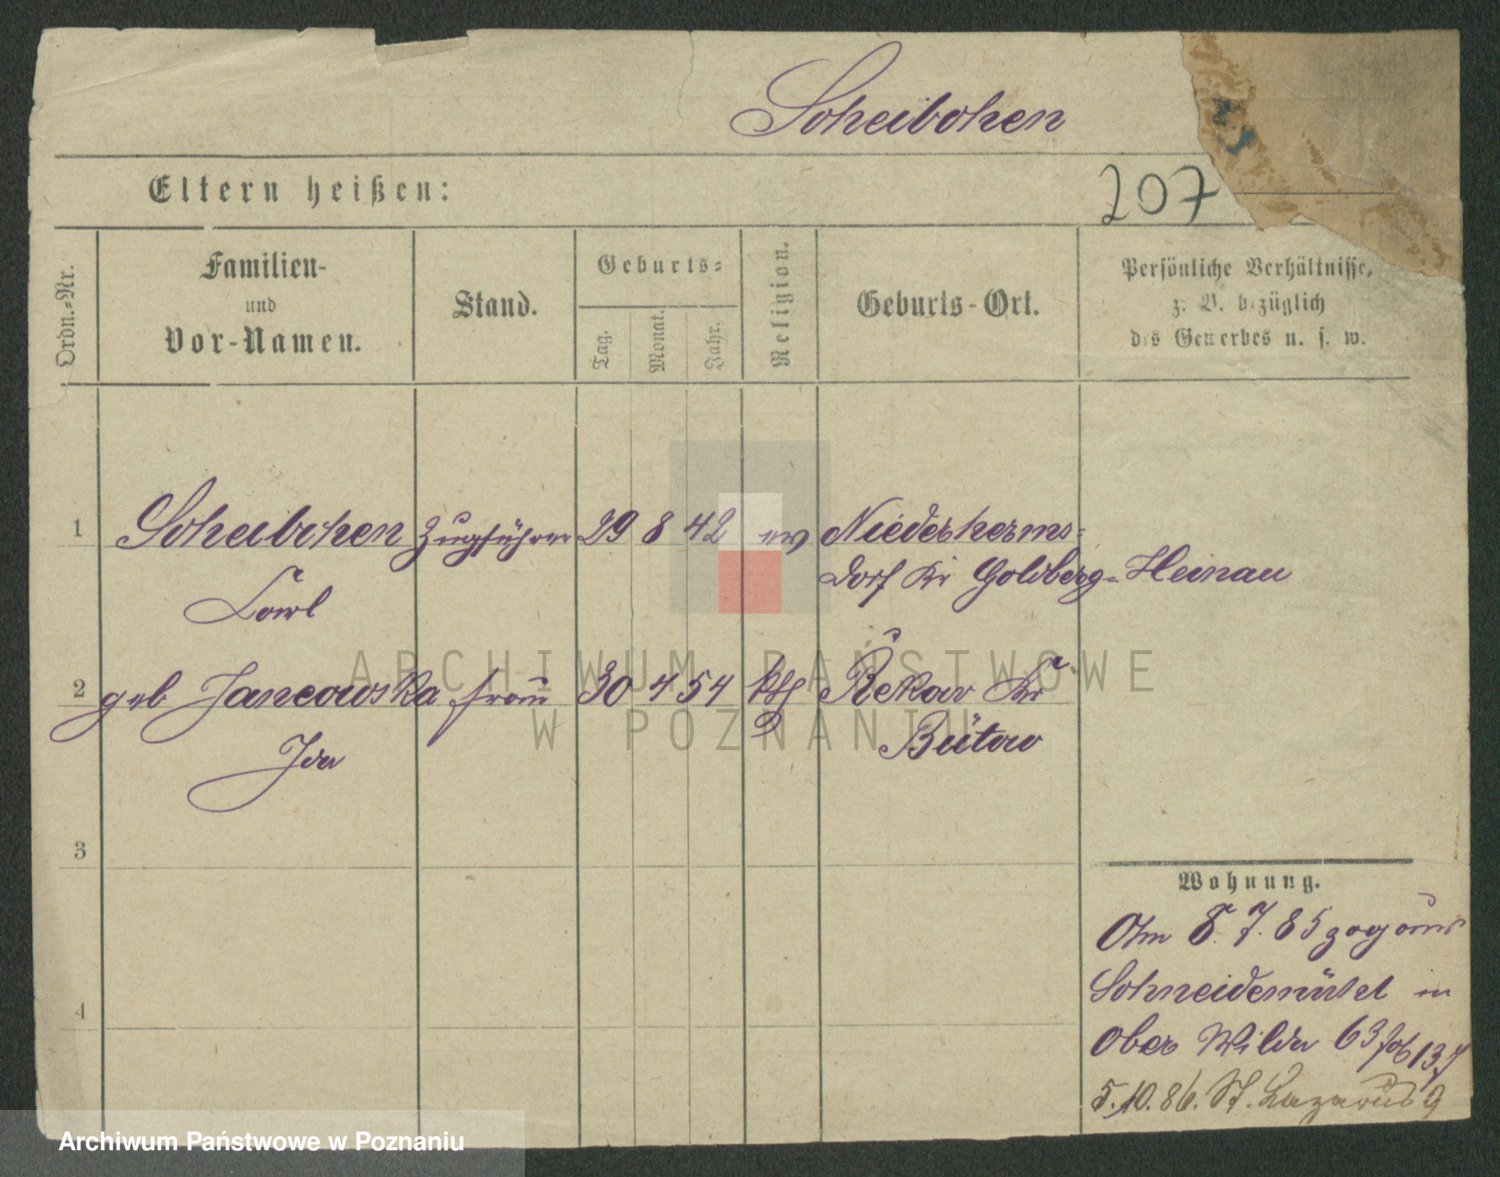 Scheibchen
Eltern heißen:
207
Ordn.-Nr.
Familien-
und
Vor-Namen.
Stand.
Geburts-
Tag.
Monat.
Jahr.
Religion.
Geburts-Ort.
Persönliche Verhältnisse,
z. B. bezüglich
des Gewerbes u. s. w.
1 Scheibchen Zugführer 29 8 42 ev Niederherms-
Carl dorf Kr Goldberg-Heinau
2 geb Jancowska frau 30 4 54 kth Rekow Kr
Ida Bütow
3
4
Wohnung.
Am 8. 7. 85 zog aus
Schneidemühl in
Ober Wilda 63
5.10.86. St. Lazarus 9
ARCHIWUM PAŃSTWOWE
W POZNANIU
Archiwum Państwowe w Poznaniu